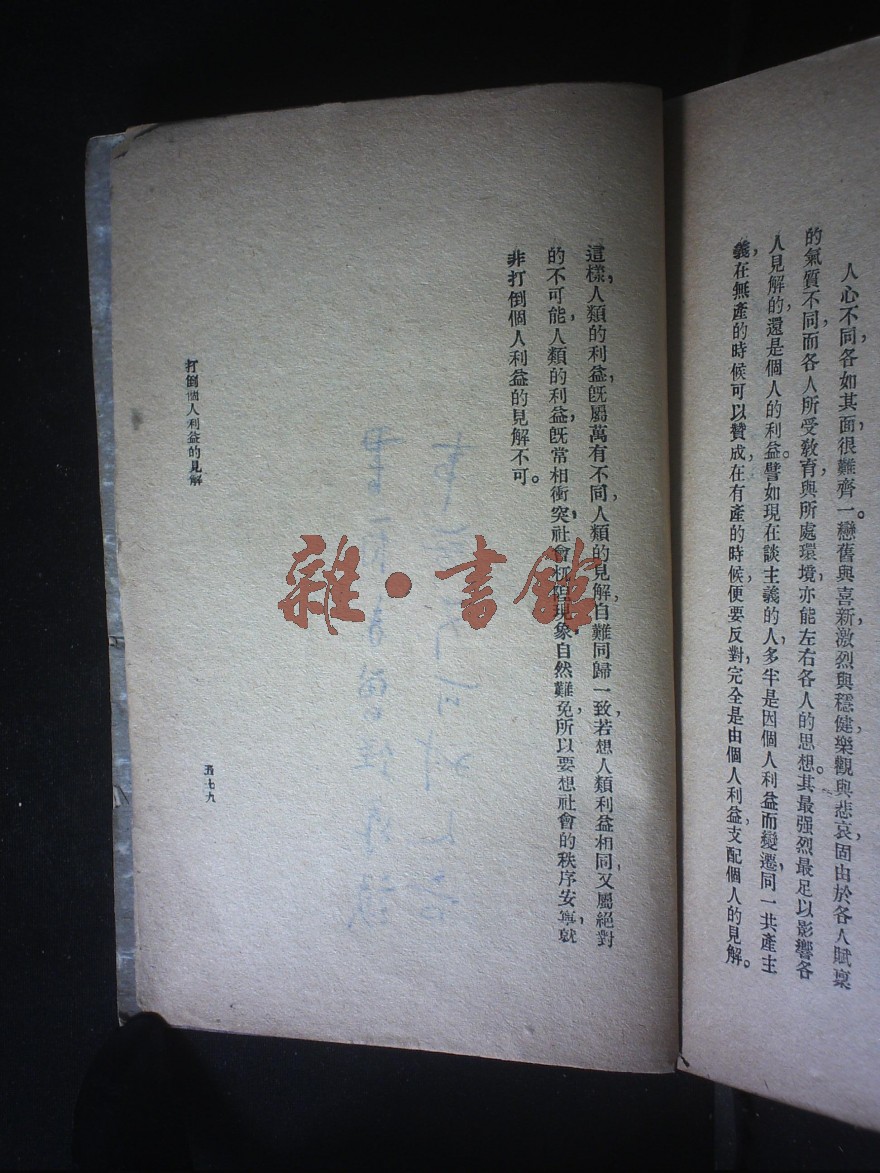 人心不同，各如其面，很難齊一。戀舊與喜新，激烈與穩健，樂觀與悲哀，固由於各人賦稟
的氣质不同，而各人所受教育，與所處環境，亦能左右各人的思想。其最强烈最足以影響各
人見解的，還是個人的利益。譬如現在談主義的人，多半是因個人利益而變遷，同一共產主
義，在無產的時候，可以贊成，在有產的時候，便要反對，完全是由個人利益支配個人的見解。
這樣，人類的利益，旣屬萬有不同，人類的見解，自難同歸一致，若想人類利益相同，又屬絕對
的不可能，人類的利益，旣常相衝突，社會杌隉現象，自然難免，所以要想社會的秩序安寧，就
非打倒個人利益的見解不可。
打倒個人利益的見解
五七九
雜·書館